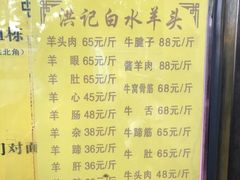 洪记白水羊头
羊头肉 65元/斤
羊眼 65元/斤
羊肚 65元/斤
羊心 45元/斤
羊肠 48元/斤
羊杂 38元/斤
羊蹄 36元/斤
羊肝 36元/斤
牛腱子 88元/斤
酱羊肉 88元/斤
牛窝骨筋 68元/斤
牛舌 68元/斤
牛蹄筋 65元/斤
牛肚 65元/斤
牛头肉 48元/斤
北角)
栋
门对面